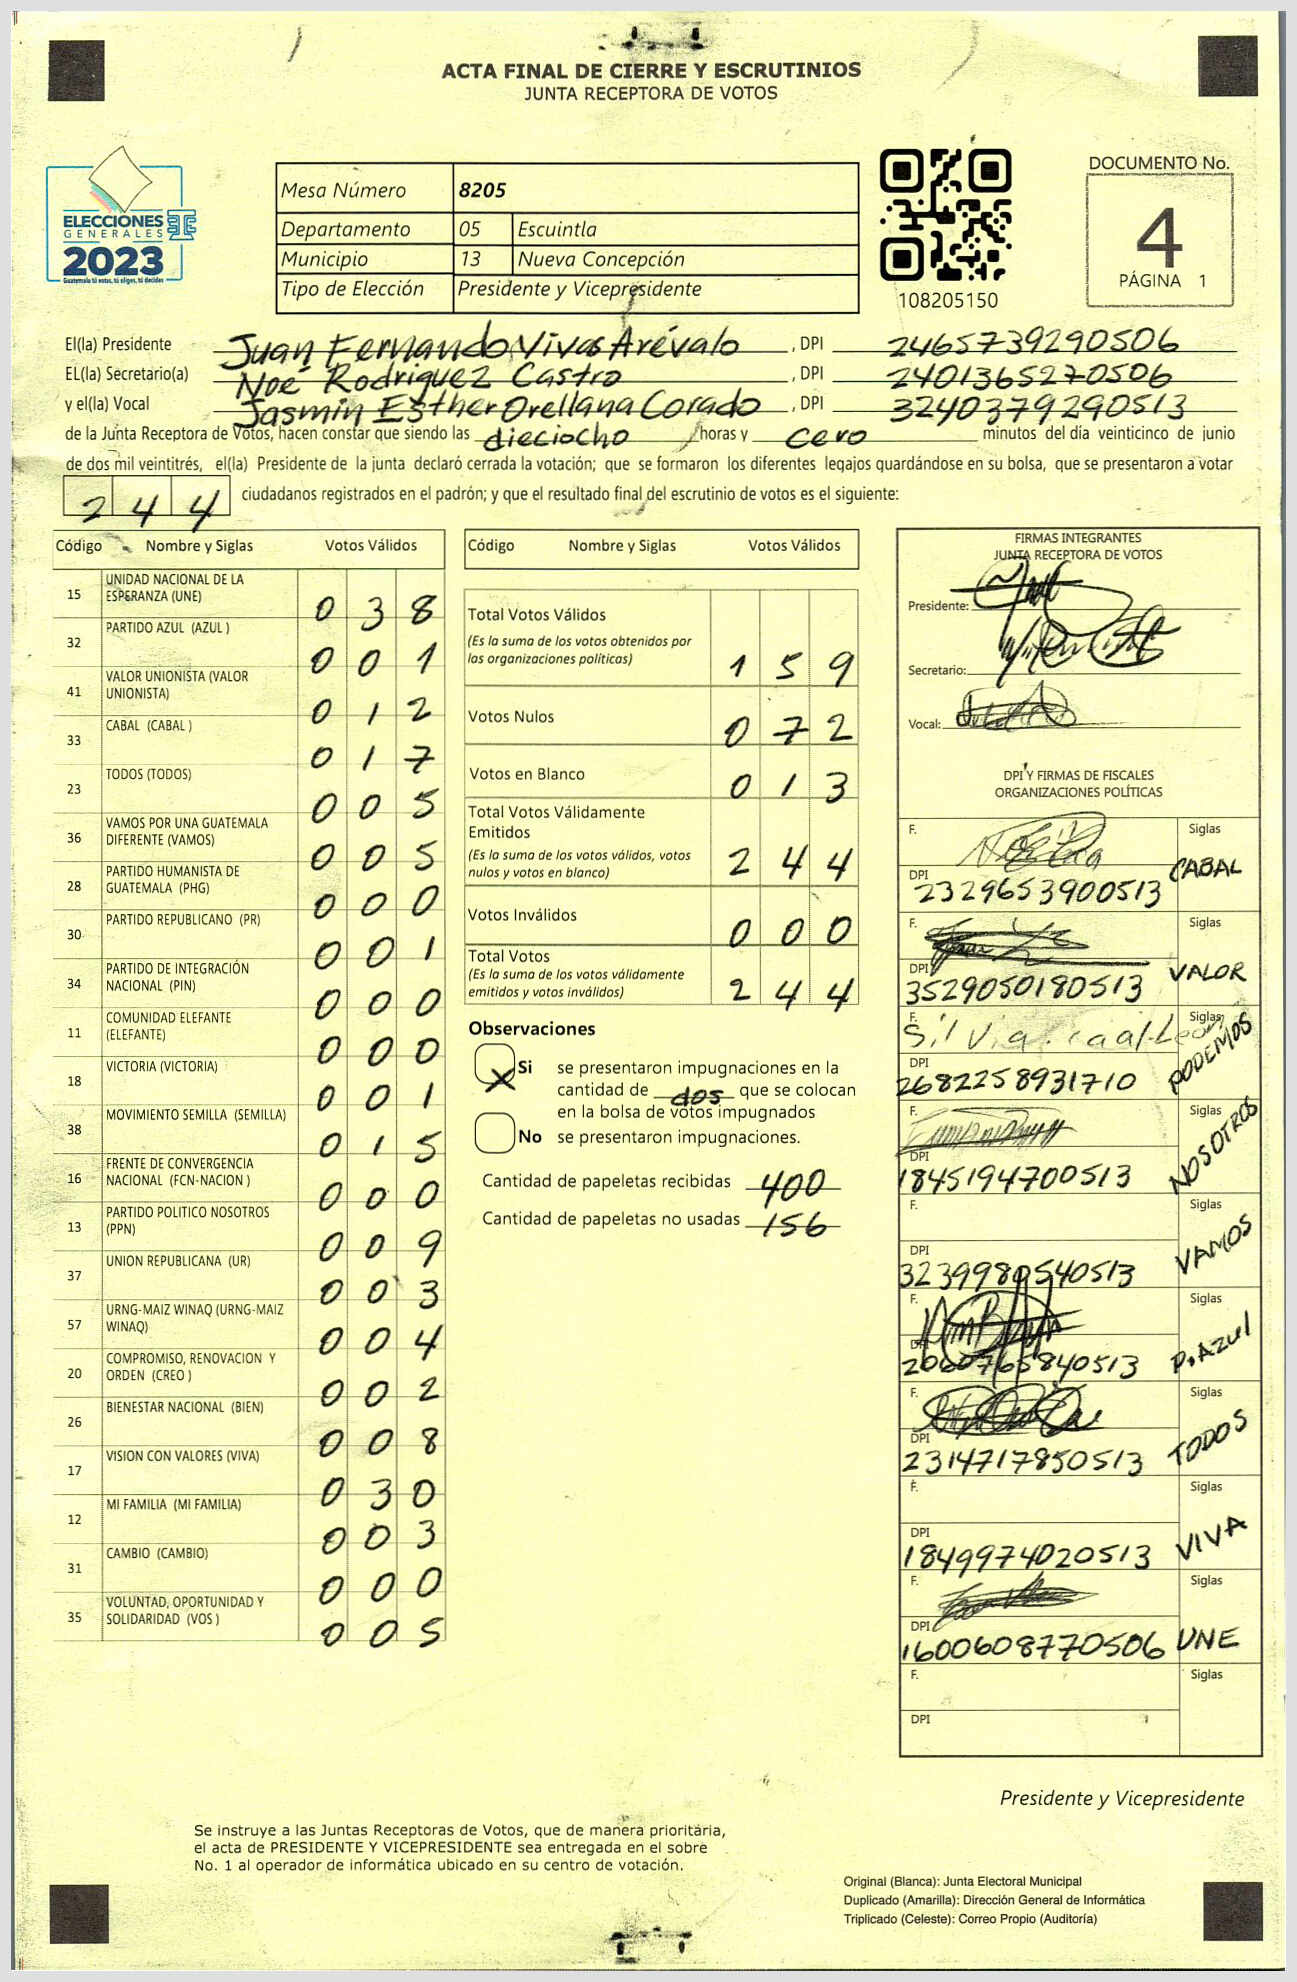 ACTA FINAL DE CIERRE Y ESCRUTINIOS
JUNTA RECEPTORA DE VOTOS
ELECCIONES
GENERALES
2023
Guatemala tú votas, tú eliges, tú decides
Mesa Número 8205
Departamento 05 Escuintla
Municipio 13 Nueva Concepción
Tipo de Elección Presidente y Vicepresidente
108205150
DOCUMENTO No.
4
PÁGINA 1
El(la) Presidente Juan Fernando Vivas Arévalo , DPI 2465739290506
EL(la) Secretario(a) Noé Rodriguez Castro , DPI 2401365270506
y el(la) Vocal Jasmin Esther Orellana Corado , DPI 3240379290513
de la Junta Receptora de Votos, hacen constar que siendo las dieciocho horas y cero minutos del día veinticinco de junio
de dos mil veintitrés, el(la) Presidente de la junta declaró cerrada la votación; que se formaron los diferentes legajos guardándose en su bolsa, que se presentaron a votar
2 4 4 ciudadanos registrados en el padrón; y que el resultado final del escrutinio de votos es el siguiente:
Código Nombre y Siglas Votos Válidos
15 UNIDAD NACIONAL DE LA ESPERANZA (UNE) 0 3 8
32 PARTIDO AZUL (AZUL ) 0 0 1
41 VALOR UNIONISTA (VALOR UNIONISTA) 0 1 2
33 CABAL (CABAL ) 0 1 7
23 TODOS (TODOS) 0 0 5
36 VAMOS POR UNA GUATEMALA DIFERENTE (VAMOS) 0 0 5
28 PARTIDO HUMANISTA DE GUATEMALA (PHG) 0 0 0
30 PARTIDO REPUBLICANO (PR) 0 0 1
34 PARTIDO DE INTEGRACIÓN NACIONAL (PIN) 0 0 0
11 COMUNIDAD ELEFANTE (ELEFANTE) 0 0 0
18 VICTORIA (VICTORIA) 0 0 1
38 MOVIMIENTO SEMILLA (SEMILLA) 0 1 5
16 FRENTE DE CONVERGENCIA NACIONAL (FCN-NACION ) 0 0 0
13 PARTIDO POLITICO NOSOTROS (PPN) 0 0 9
37 UNION REPUBLICANA (UR) 0 0 3
57 URNG-MAIZ WINAQ (URNG-MAIZ WINAQ) 0 0 4
20 COMPROMISO, RENOVACION Y ORDEN (CREO ) 0 0 2
26 BIENESTAR NACIONAL (BIEN) 0 0 8
17 VISION CON VALORES (VIVA) 0 3 0
12 MI FAMILIA (MI FAMILIA) 0 0 3
31 CAMBIO (CAMBIO) 0 0 0
35 VOLUNTAD, OPORTUNIDAD Y SOLIDARIDAD (VOS ) 0 0 5
Código Nombre y Siglas Votos Válidos
Total Votos Válidos
(Es la suma de los votos obtenidos por
las organizaciones políticas) 1 5 9
Votos Nulos 0 7 2
Votos en Blanco 0 1 3
Total Votos Válidamente
Emitidos
(Es la suma de los votos válidos, votos
nulos y votos en blanco) 2 4 4
Votos Inválidos 0 0 0
Total Votos
(Es la suma de los votos válidamente
emitidos y votos inválidos) 2 4 4
Observaciones
X Si se presentaron impugnaciones en la
cantidad de dos que se colocan
en la bolsa de votos impugnados
No se presentaron impugnaciones.
Cantidad de papeletas recibidas 400
Cantidad de papeletas no usadas 156
FIRMAS INTEGRANTES
JUNTA RECEPTORA DE VOTOS
Presidente:
Secretario:
Vocal:
DPI Y FIRMAS DE FISCALES
ORGANIZACIONES POLÍTICAS
F. Siglas
DPI 2329653900513 CABAL
F. Siglas
DPI 3529050180513 VALOR
F. Silvia Siglas
DPI 2682258931710 PODEMOS
F. Siglas
DPI 1845194700513 NOSOTROS
F. Siglas
DPI 3239980540513 VAMOS
F. Siglas
DPI 2060765840513 P. Azul
F. Siglas
DPI 2314717850513 TODOS
F. Siglas
DPI 1849974020513 VIVA
F. Siglas
DPI 1600608770506 UNE
F. Siglas
DPI
Presidente y Vicepresidente
Se instruye a las Juntas Receptoras de Votos, que de manera prioritaria,
el acta de PRESIDENTE Y VICEPRESIDENTE sea entregada en el sobre
No. 1 al operador de informática ubicado en su centro de votación.
Original (Blanca): Junta Electoral Municipal
Duplicado (Amarilla): Dirección General de Informática
Triplicado (Celeste): Correo Propio (Auditoría)